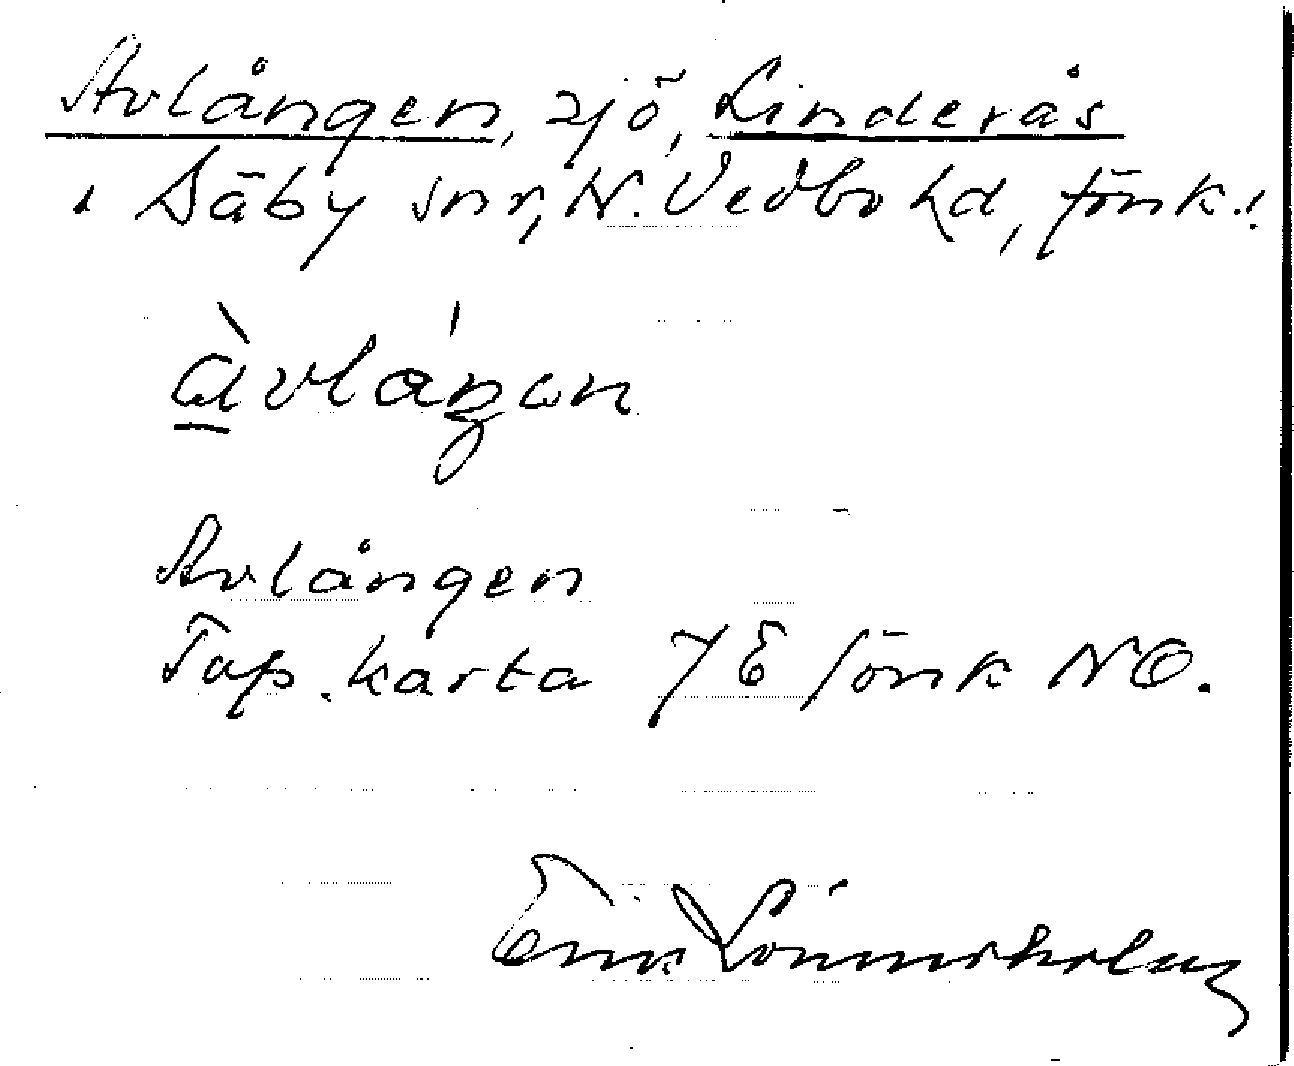 Avlången, sjö, Linderås
, Säby snr, N. Vedbo hd, Jönk.l
àvláŋən
Avlången
Top. karta 7E Jönk NO.
Erik